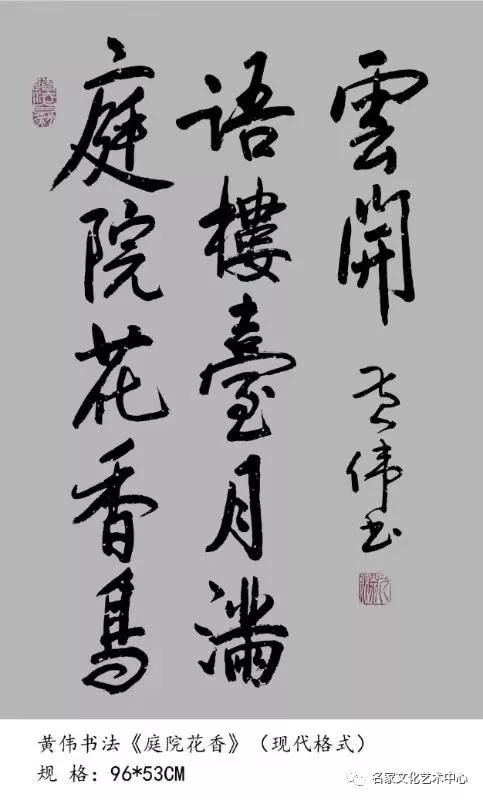 庭院花香鳥
語樓臺月滿
雲開
黄伟书
黄伟书法《庭院花香》（现代格式）
规 格：96*53CM
名家文化艺术中心